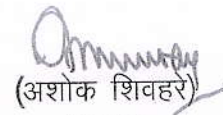 (अशोक शिवहरे)